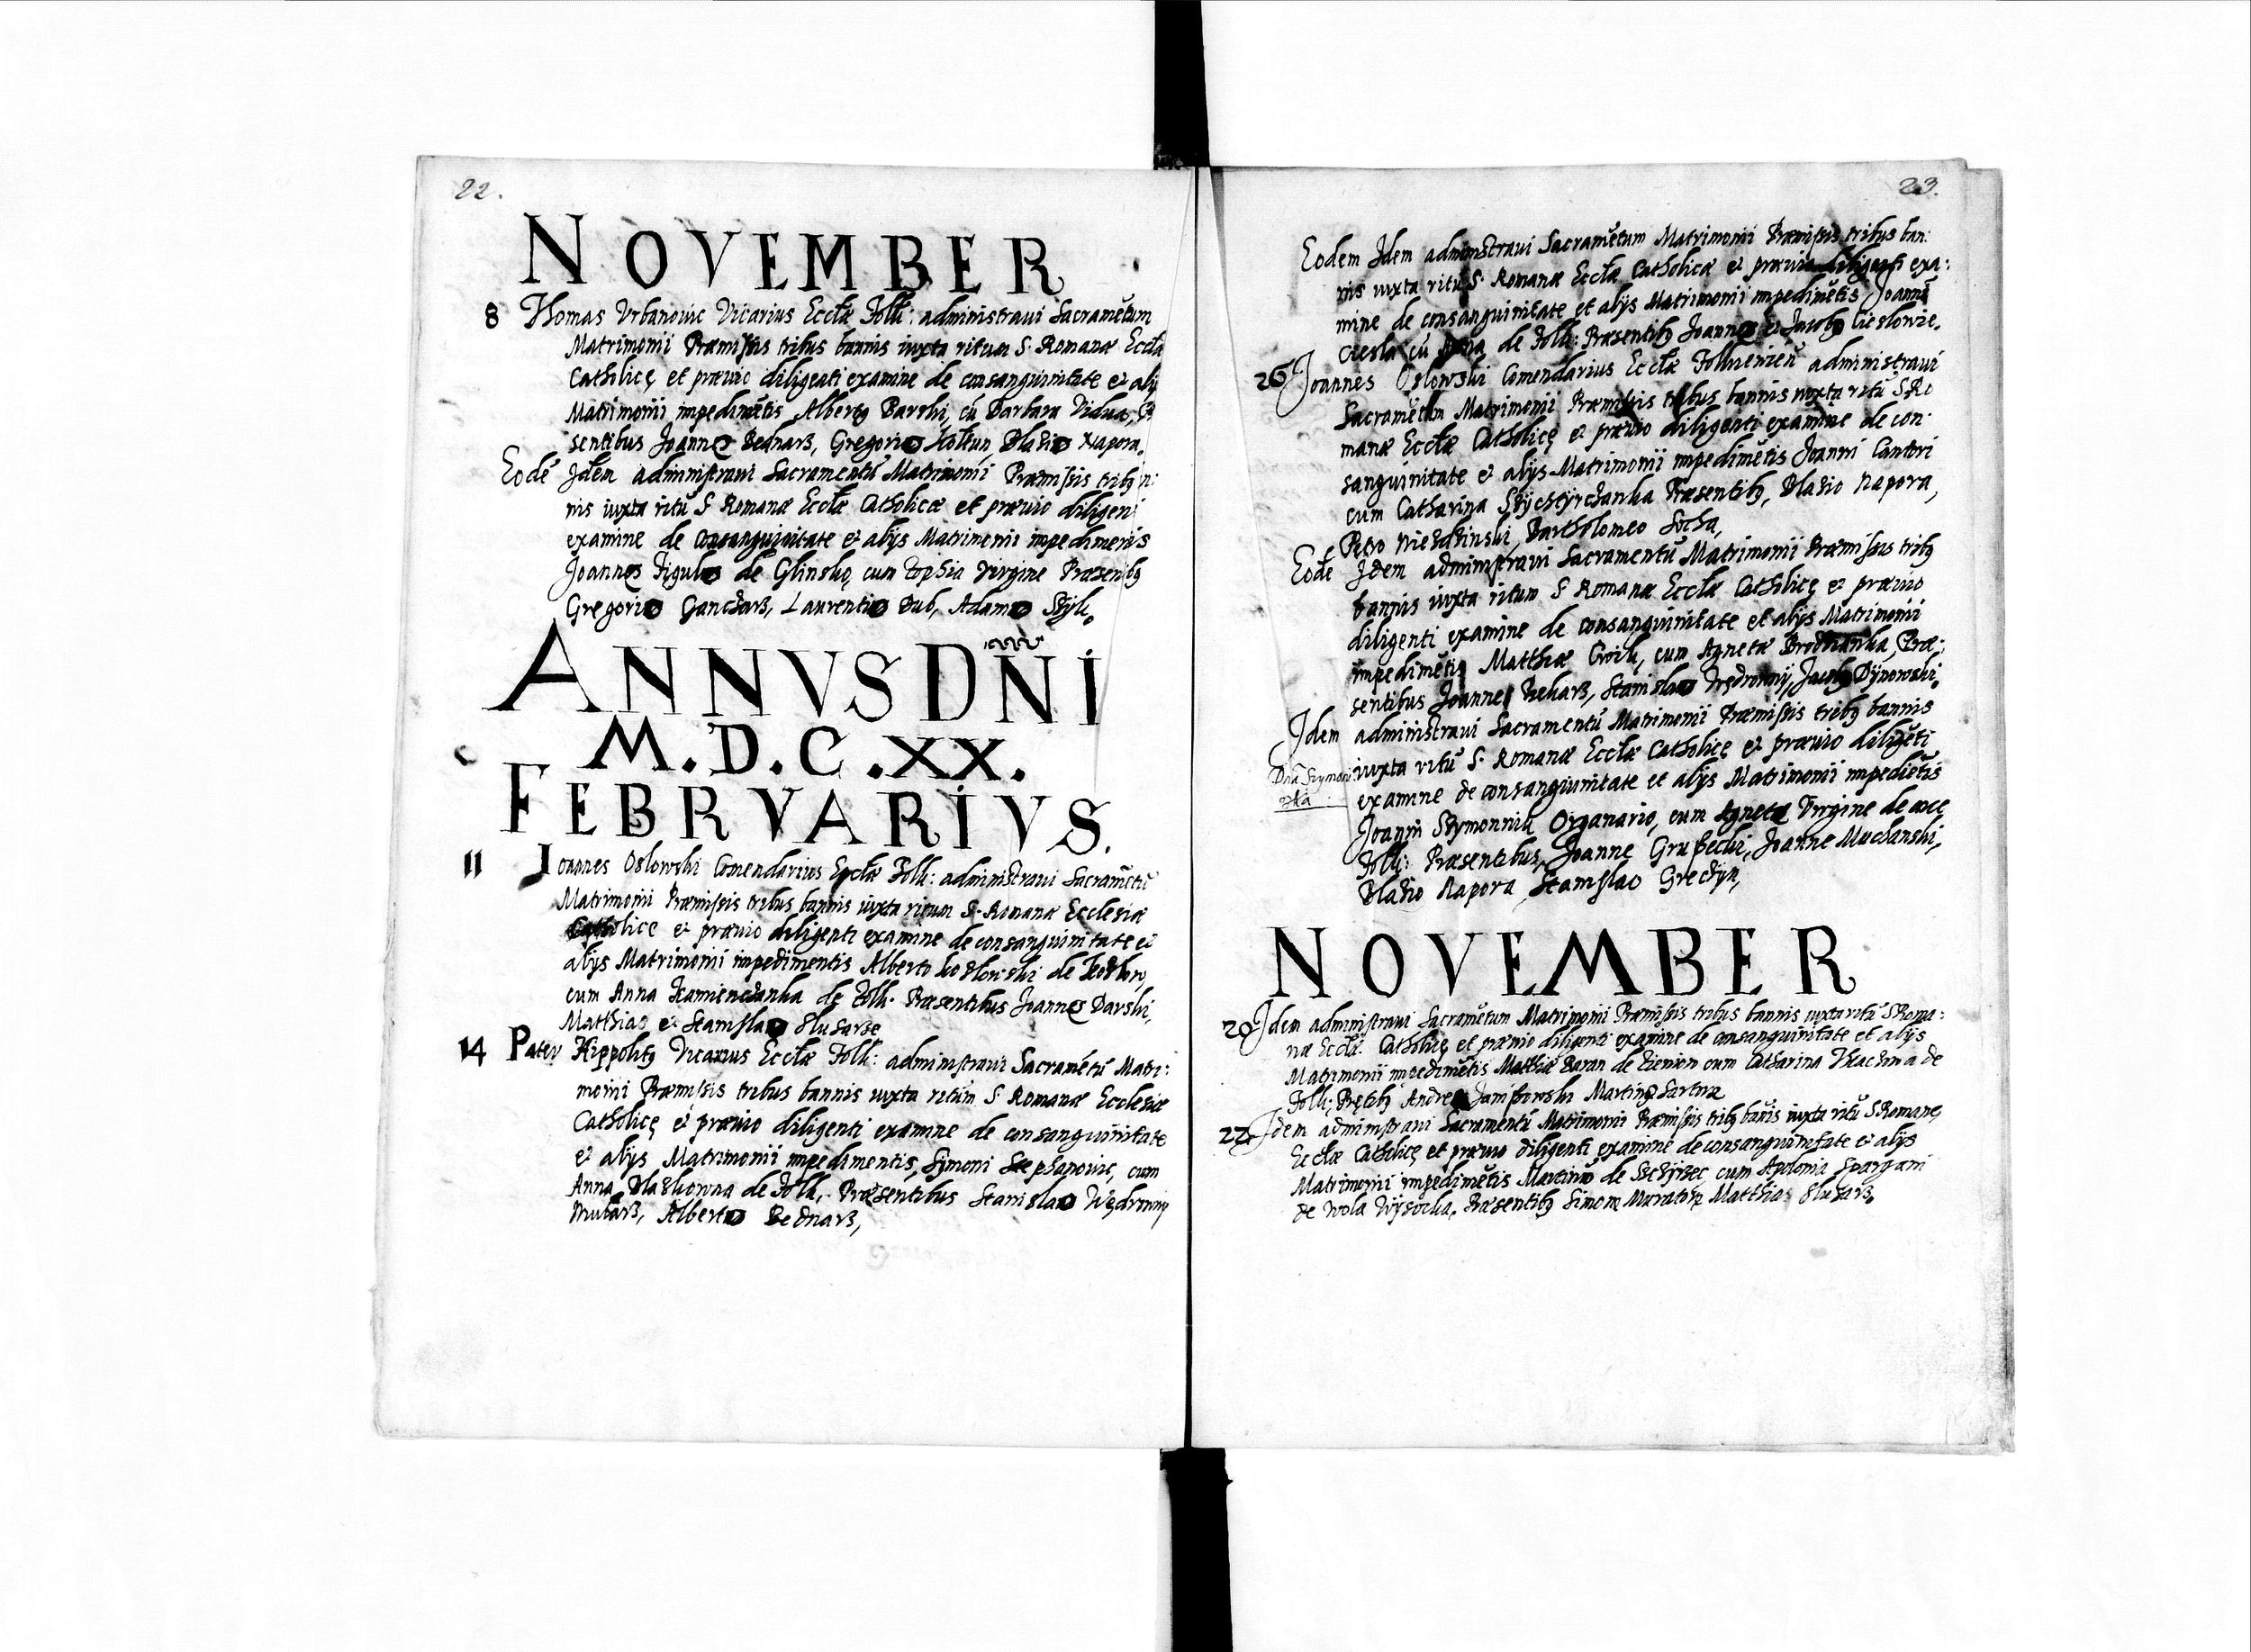 22.
NOVEMBER
8 Thomas Vrbanovic Vicarius Eccłæ Zolk: administraui Sacramētum
Matrimonii Præmissis tribus bannis iuxta ritum S. Romanæ Eccłæ
Catholicę et prævio diligenti examine de consanguinitate et alijs
Matrimonii impedimētis Alberto Barshi, cū Barbara Vidua,
sentibus Joanne Bednarz, Gregorio Blasio Napora.
Eodē Idem administraui Sacramentū Matrimonii Præmissis tribȝ
nis iuxta ritū S. Romanæ Eccłæ Catholicæ et prævio diligen
examine de consanguinitate et alijs Matrimonii
Joannes Figulus de Glinsko, cum Zophia Virgine
Gregorio Gancharz, Laurentio Dub, Adamo
ANNVS DNI
M.D.C.XX.
FEBRVARIVS.
11 Joannes Oslowski Comendarius Eccłæ Zolk: administraui Sacramētū
Matrimonii Præmissis tribus bannis iuxta ritum S. Romanæ Ecclesiæ
Catholice et prævio diligenti examine de consanguinitate et
alijs Matrimonii impedimentis Alberto Kozlowski de
cum Anna Kamienczanka de Zolk. Præsentibus Joanne Darski,
Matthia et Stanislao Slusarze
14 Pater Hippolitȝ Vicarius Eccłæ Zolk: administraui Sacramētū Matri:
monii Præmissis tribus bannis iuxta ritum S. Romanæ Ecclesiæ
Catholicę et prævio diligenti examine de consanguinitate
et alijs Matrimonii impedimentis, Symoni Stephanovic, cum
Anna Blaskowna de Zolk. Præsentibus Stanislao
Mularz, Alberto Bednarz,
23.
Eodem Idem administraui Sacramētum Matrimonii Præmissis tribus ban:
nis iuxta ritū S. Romanæ Eccłæ Catholicæ et prævio diligenti exa:
mine de consanguinitate et alijs Matrimonii impedimētis Joanni
Ciesla cū Anna de Zolk: Præsentibȝ Joanne et Jacobo
26 Joannes Oslowski Comendarius Eccłæ administraui
Sacramētum Matrimonii Præmissis tribus bannis iuxta ritū S Ro
manæ Eccłæ Catholicę et prævio diligenti examine de con:
sanguinitate et alijs Matrimonii impedimētis Joanni Cantori
cum Catharina Præsentibȝ, Blasio Napora,
Petro Bartholomeo Socha,
Eodē Idem administraui Sacramentū Matrimonii Præmissis tribȝ
bannis iuxta ritum S. Romanæ Eccłæ Catholicę et prævio
diligenti examine de consanguinitate et alijs Matrimonii
impedimētis Matthiæ cum Agneta Præ:
sentibus Joanne Stanislao Jacobo Dynowski.
Idem administraui Sacramentū Matrimonii Præmissis tribȝ bannis
iuxta ritū S. Romanæ Eccłæ Catholicę et prævio diligēti
examine de consanguinitate et alijs Matrimonii impedimētis
Joanni Szymonnik Organario, cum Agneta Virgine de
Zolk: Præsentibus, Joanne Joanne
Blasio Napora Stanislao
NOVEMBER
20 Idem administraui Sacramētum Matrimonii Præmissis tribus bannis iuxta ritū S Roma:
næ Eccłæ. Catholicę et prævio diligenti examine de consanguinitate et alijs
Matrimonii impedimētis Matthiæ Baran de cum Catharina de
Zolk: Andrea Martino
22 Idem administraui Sacramentū Matrimonii Præmissis tribȝ bānis iuxta ritū S Romane
Eccłæ Catholicę et prævio diligenti examine de consanguinitate et alijs
Matrimonii impedimētis Martino de cum Apolonia
de Wola Wysocka, Præsentibȝ Simone Matthia Slusarz.